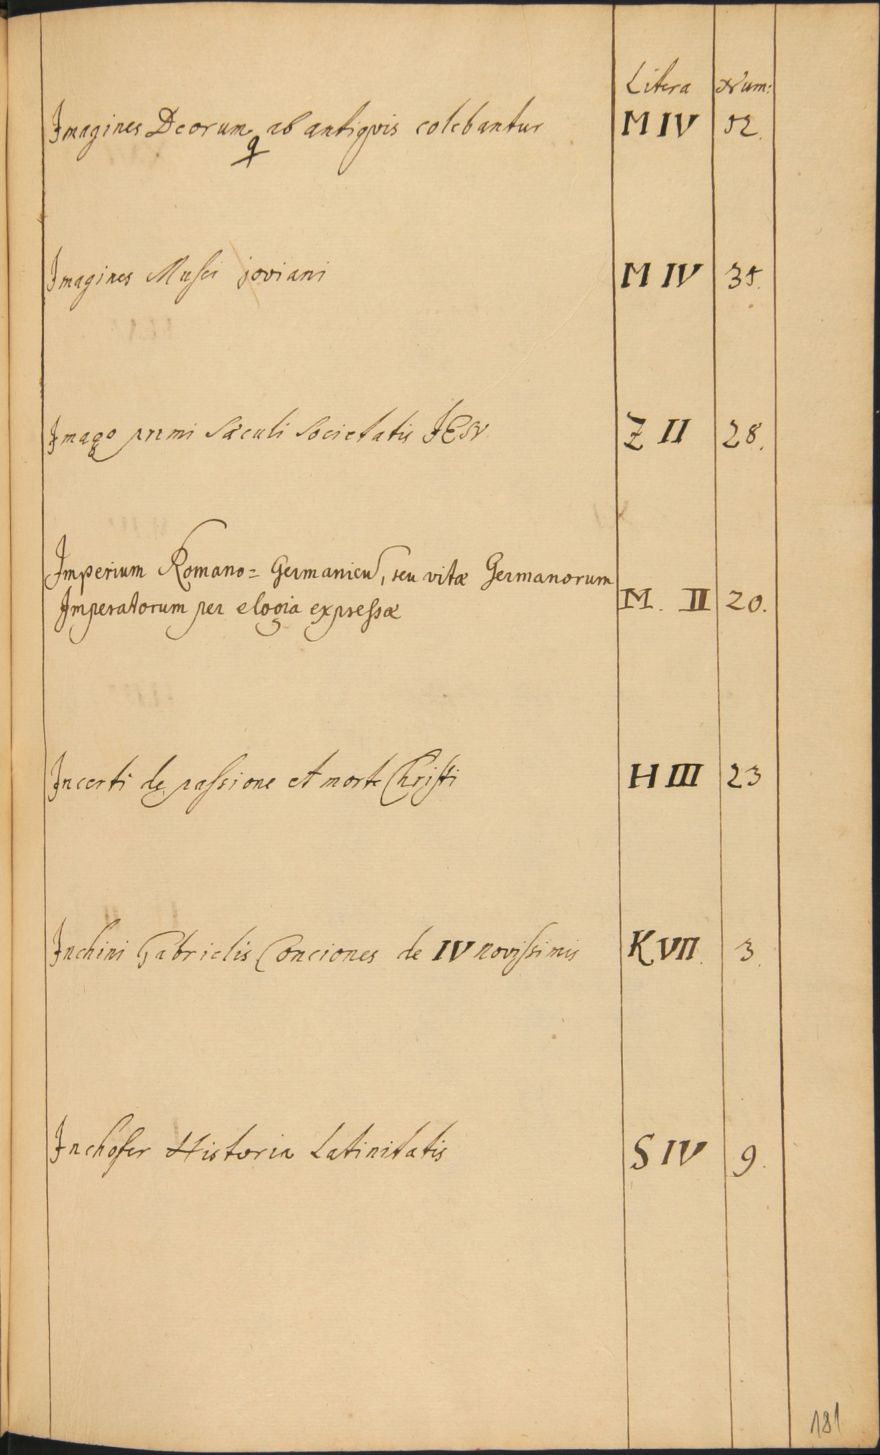 Litera Num:
Imagines Deorum q ab antiqvis colebantur M IV 52.
Imagines Musei joviani M IV 35.
Imago primi sæculi societatis JESV Z II 28.
Imperium Romano= Germanicū, seu vitæ Germanorum
Imperatorum per elogia expressæ M. II 20.
Incerti de passione et morte Christi H III 23
Inchini Gabrielis Conciones de IV novissimis K VII. 3.
Inchofer Historia Latinitatis S IV 9.
181